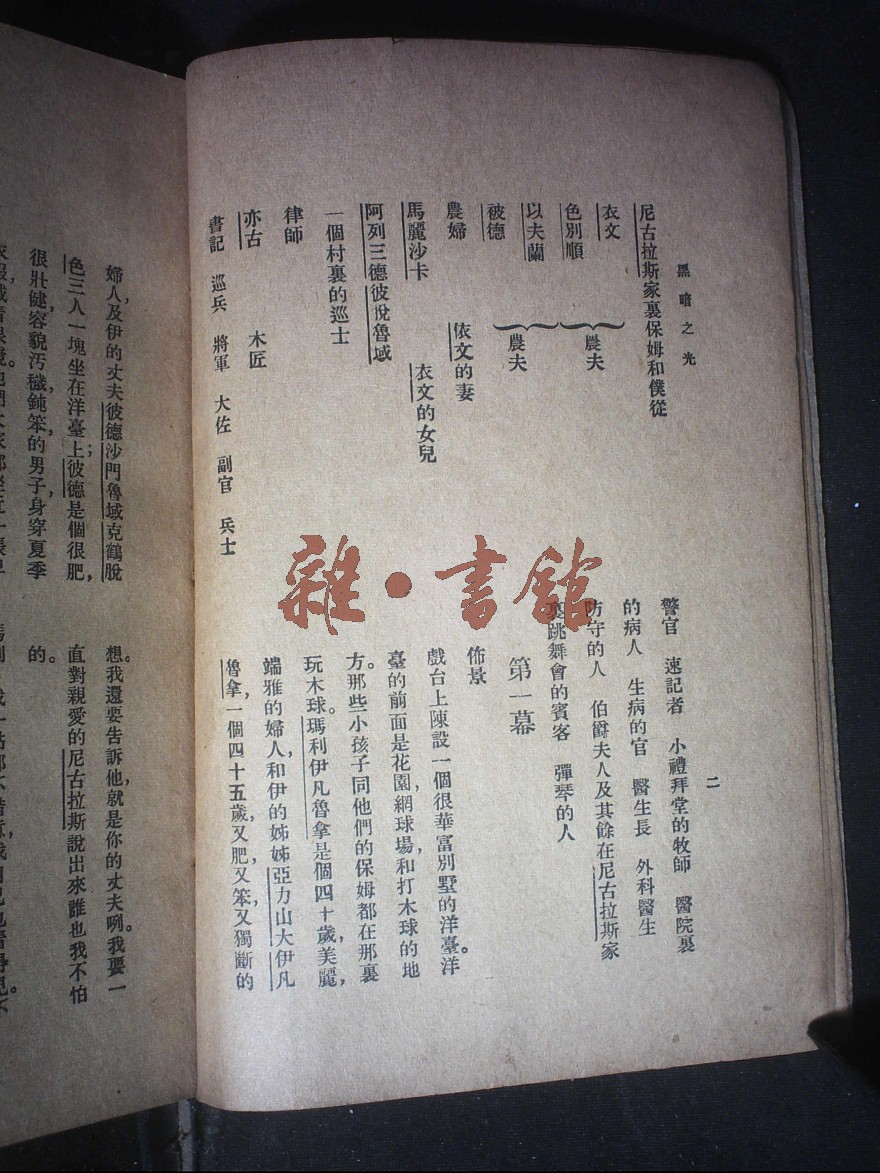 黑暗之光
二
尼古拉斯家裏保姆和僕從
衣文
色別順
農夫
以夫蘭
彼德
農夫
農婦 依文的妻
馬麗沙卡 衣文的女兒
阿列三德彼悅魯域
一個村裏的巡士
律師
亦古 木匠
書記 巡兵 將軍 大佐 副官 兵士
警官 速記者 小禮拜堂的牧師 醫院裏
的病人 生病的官 醫生長 外科醫生
防守的人 伯爵夫人及其餘在尼古拉斯家
裏跳舞會的賓客 彈琴的人
第一幕
佈景
戲台上陳設一個很華富別墅的洋臺。洋
臺的前面是花園，網球場和打木球的地
方。那些小孩子同他們的保姆都在那裏
玩木球。瑪利伊凡魯拿是個四十歲，美麗，
端雅的婦人，和伊的姊姊亞力山大伊凡
魯拿，一個四十五歲，又肥，又笨，又獨斷的
婦人，及伊的丈夫彼德沙門魯域克鶴脫
色三人一塊坐在洋臺上；彼德是個很肥，
很壯健，容貌汚穢，鈍笨的男子，身穿夏季
想。我還要告訴他，就是你的丈夫咧。我要一
直對親愛的尼古拉斯說出來，誰也我不怕
的。